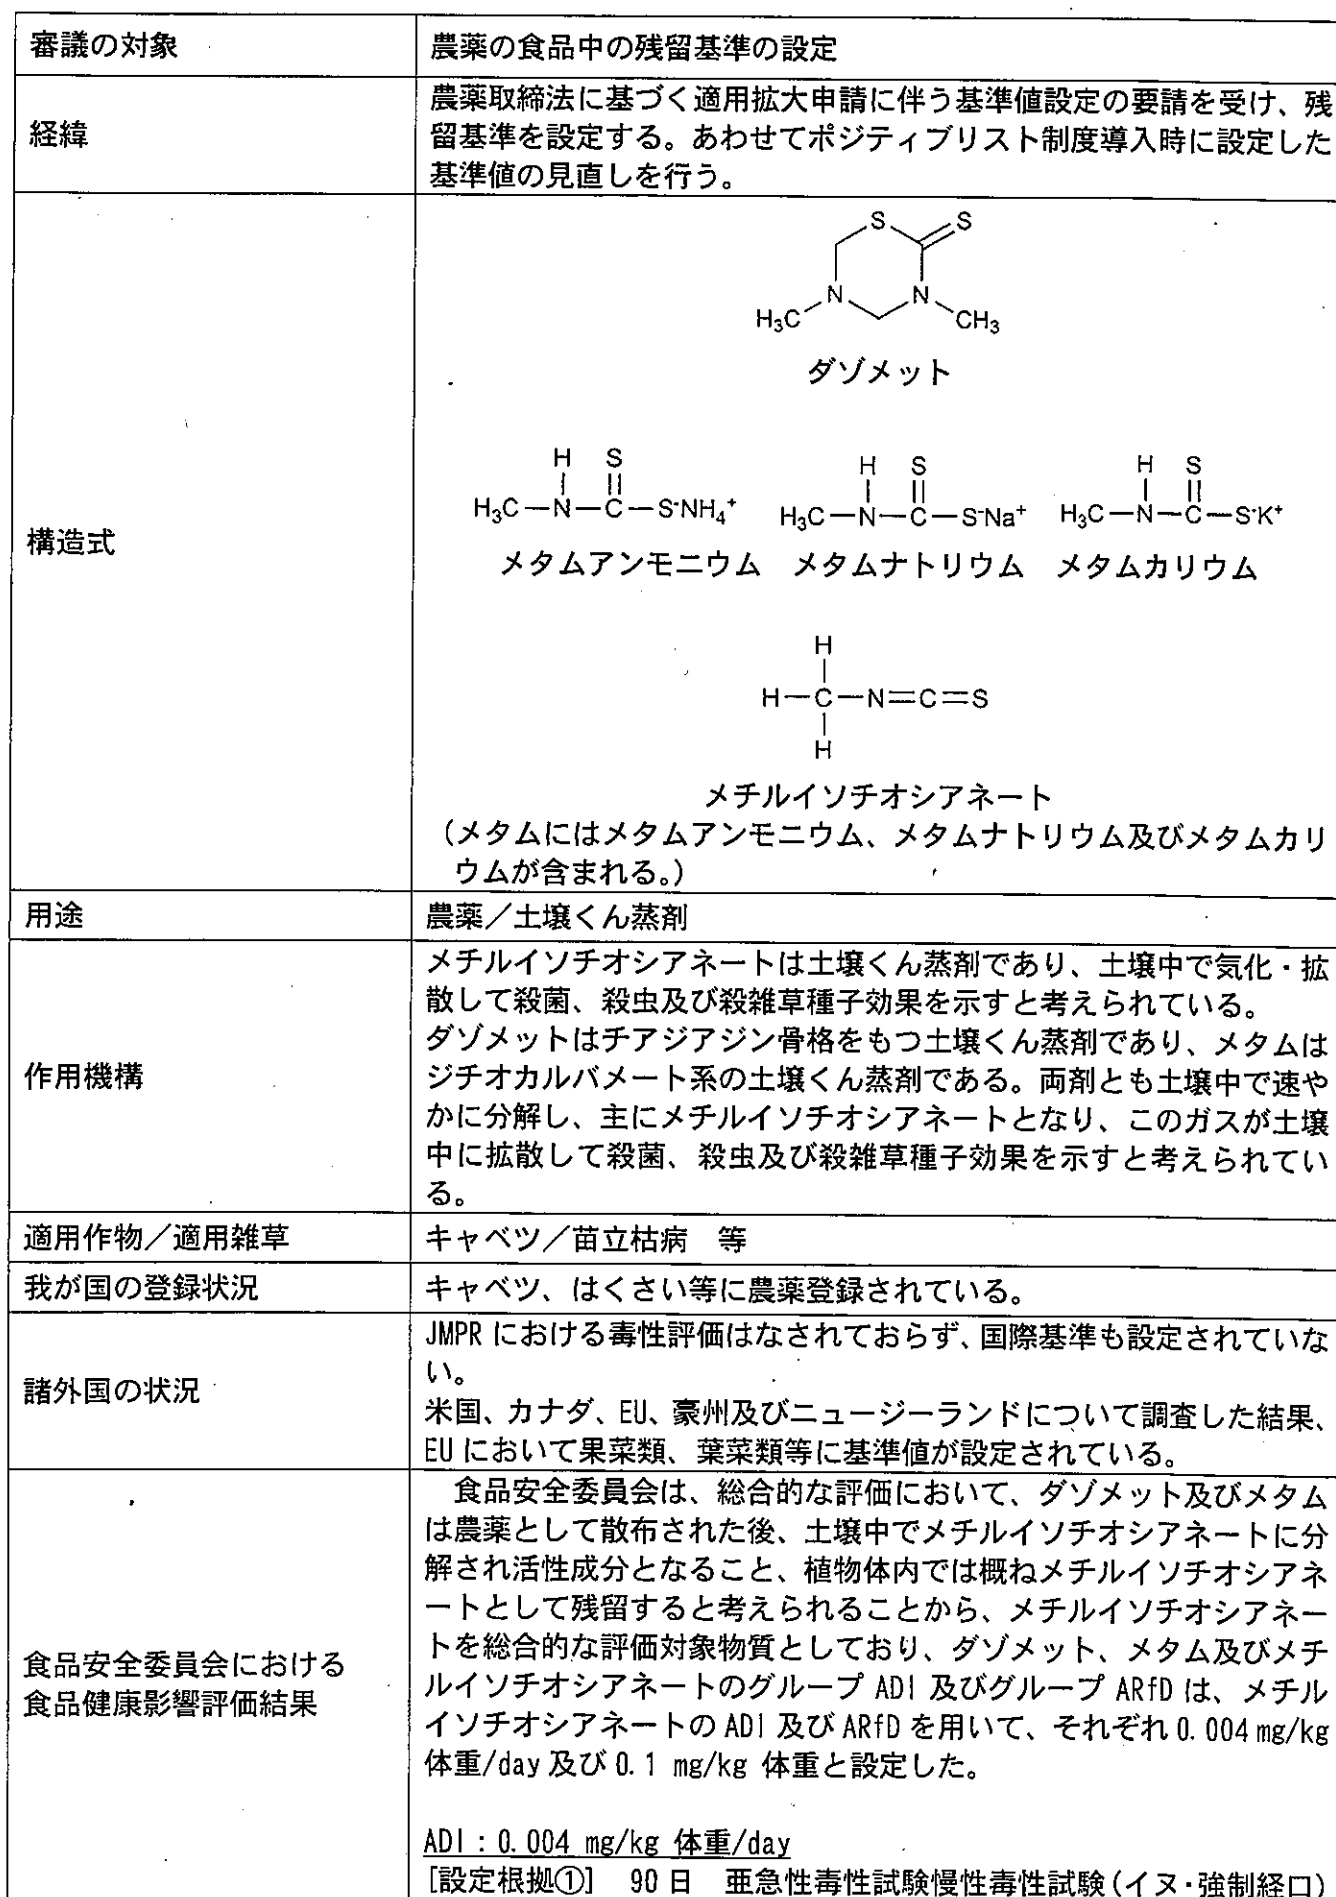 審議の対象
農薬の食品中の残留基準の設定
経緯
農薬取締法に基づく適用拡大申請に伴う基準値設定の要請を受け、残
留基準を設定する。あわせてポジティブリスト制度導入時に設定した
基準値の見直しを行う。
構造式
S S
N N
H₃C CH₃
ダゾメット
H S
H₃C—N—C—S⁻NH₄⁺
メタムアンモニウム
H S
H₃C—N—C—S⁻Na⁺
メタムナトリウム
H S
H₃C—N—C—S⁻K⁺
メタムカリウム
H
H—C—N=C=S
H
メチルイソチオシアネート
(メタムにはメタムアンモニウム、メタムナトリウム及びメタムカリ
ウムが含まれる。)
用途
農薬/土壌くん蒸剤
作用機構
メチルイソチオシアネートは土壌くん蒸剤であり、土壌中で気化・拡
散して殺菌、殺虫及び殺雑草種子効果を示すと考えられている。
ダゾメットはチアジアジン骨格をもつ土壌くん蒸剤であり、メタムは
ジチオカルバメート系の土壌くん蒸剤である。両剤とも土壌中で速や
かに分解し、主にメチルイソチオシアネートとなり、このガスが土壌
中に拡散して殺菌、殺虫及び殺雑草種子効果を示すと考えられてい
る。
適用作物/適用雑草
キャベツ/苗立枯病 等
我が国の登録状況
キャベツ、はくさい等に農薬登録されている。
諸外国の状況
JMPR における毒性評価はなされておらず、国際基準も設定されていな
い。
米国、カナダ、EU、豪州及びニュージーランドについて調査した結果、
EU において果菜類、葉菜類等に基準値が設定されている。
食品安全委員会における
食品健康影響評価結果
食品安全委員会は、総合的な評価において、ダゾメット及びメタム
は農薬として散布された後、土壌中でメチルイソチオシアネートに分
解され活性成分となること、植物体内では概ねメチルイソチオシアネ
ートとして残留すると考えられることから、メチルイソチオシアネー
トを総合的な評価対象物質としており、ダゾメット、メタム及びメチ
ルイソチオシアネートのグループ ADI 及びグループ ARfD は、メチル
イソチオシアネートの ADI 及び ARfD を用いて、それぞれ 0.004 mg/kg
体重/day 及び 0.1 mg/kg 体重と設定した。
ADI：0.004 mg/kg 体重/day
[設定根拠①] 90 日 亜急性毒性試験慢性毒性試験(イヌ・強制経口)